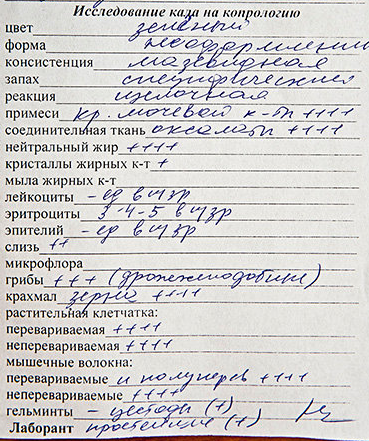 Исследование кала на копрологию
цвет зеленый
форма неоформленный
консистенция мазевидная
запах специфический
реакция щелочная
примеси кр. мочевой к-ты ++++
соединительная ткань оксалаты ++++
нейтральный жир ++++
кристаллы жирных к-т +
мыла жирных к-т
лейкоциты - ед в п/зр
эритроциты 3-4-5 в п/зр
эпителий - ед в п/зр
слизь ++
микрофлора
грибы +++ (дрожжеподобные)
крахмал зерна ++++
растительная клетчатка:
перевариваемая ++++
непереваримая ++++
мышечные волокна:
перевариваемые и полуперев ++++
непереваримые ++++
гельминты - цестоды (+)
Лаборант простейшие (+)